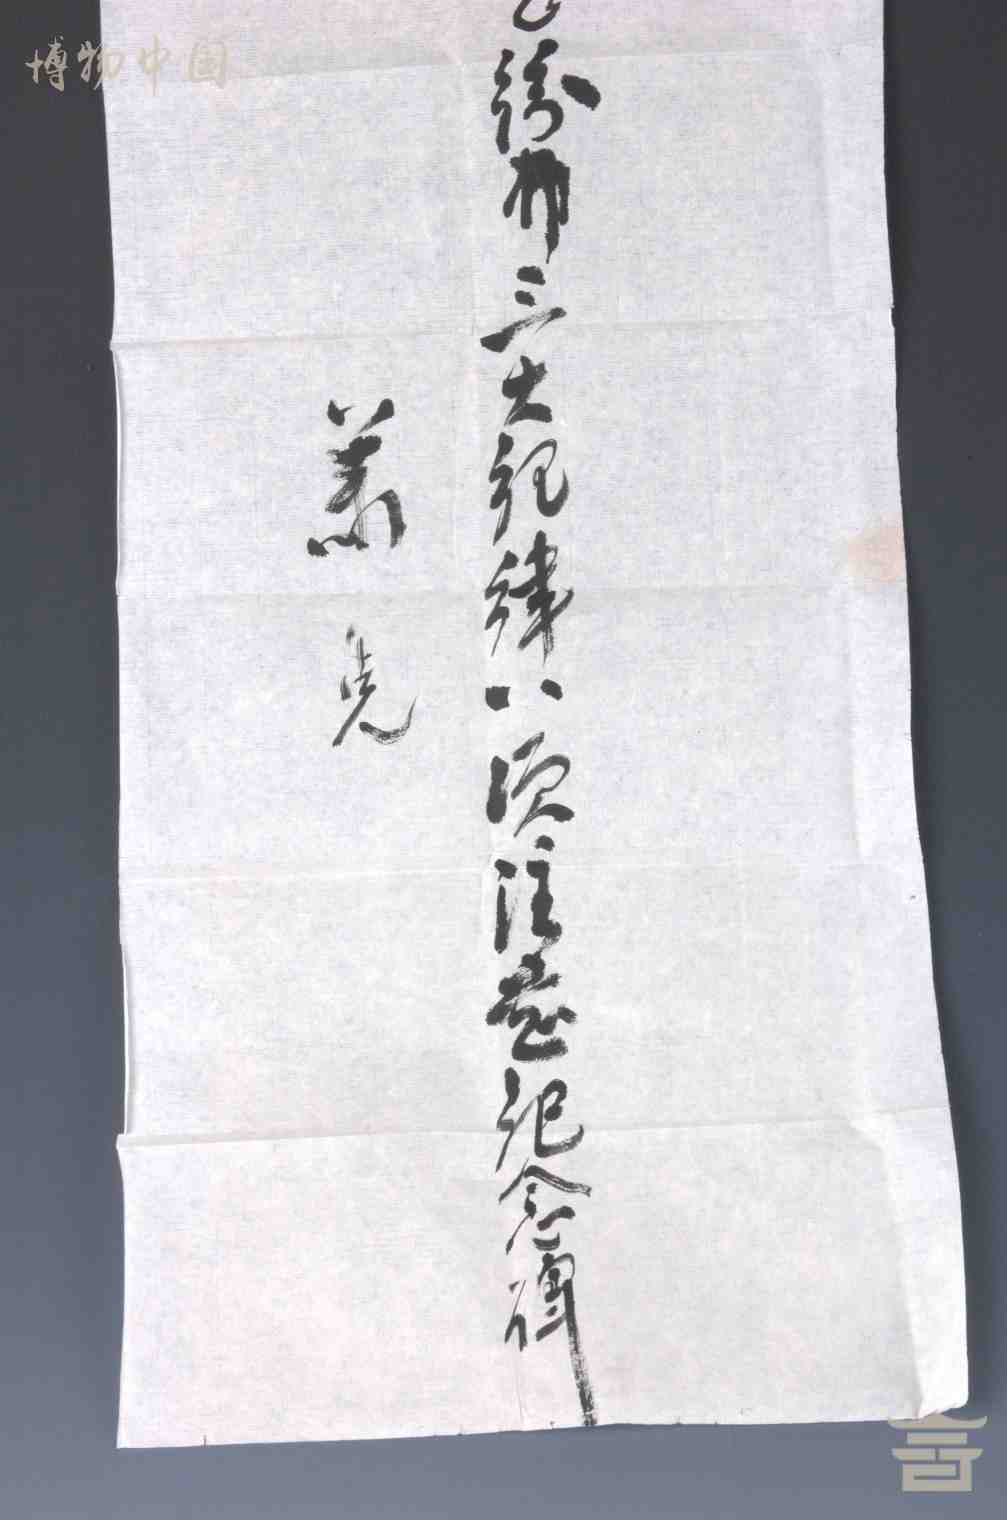 博物中国
颁布三大纪律八项注意纪念碑
萧克